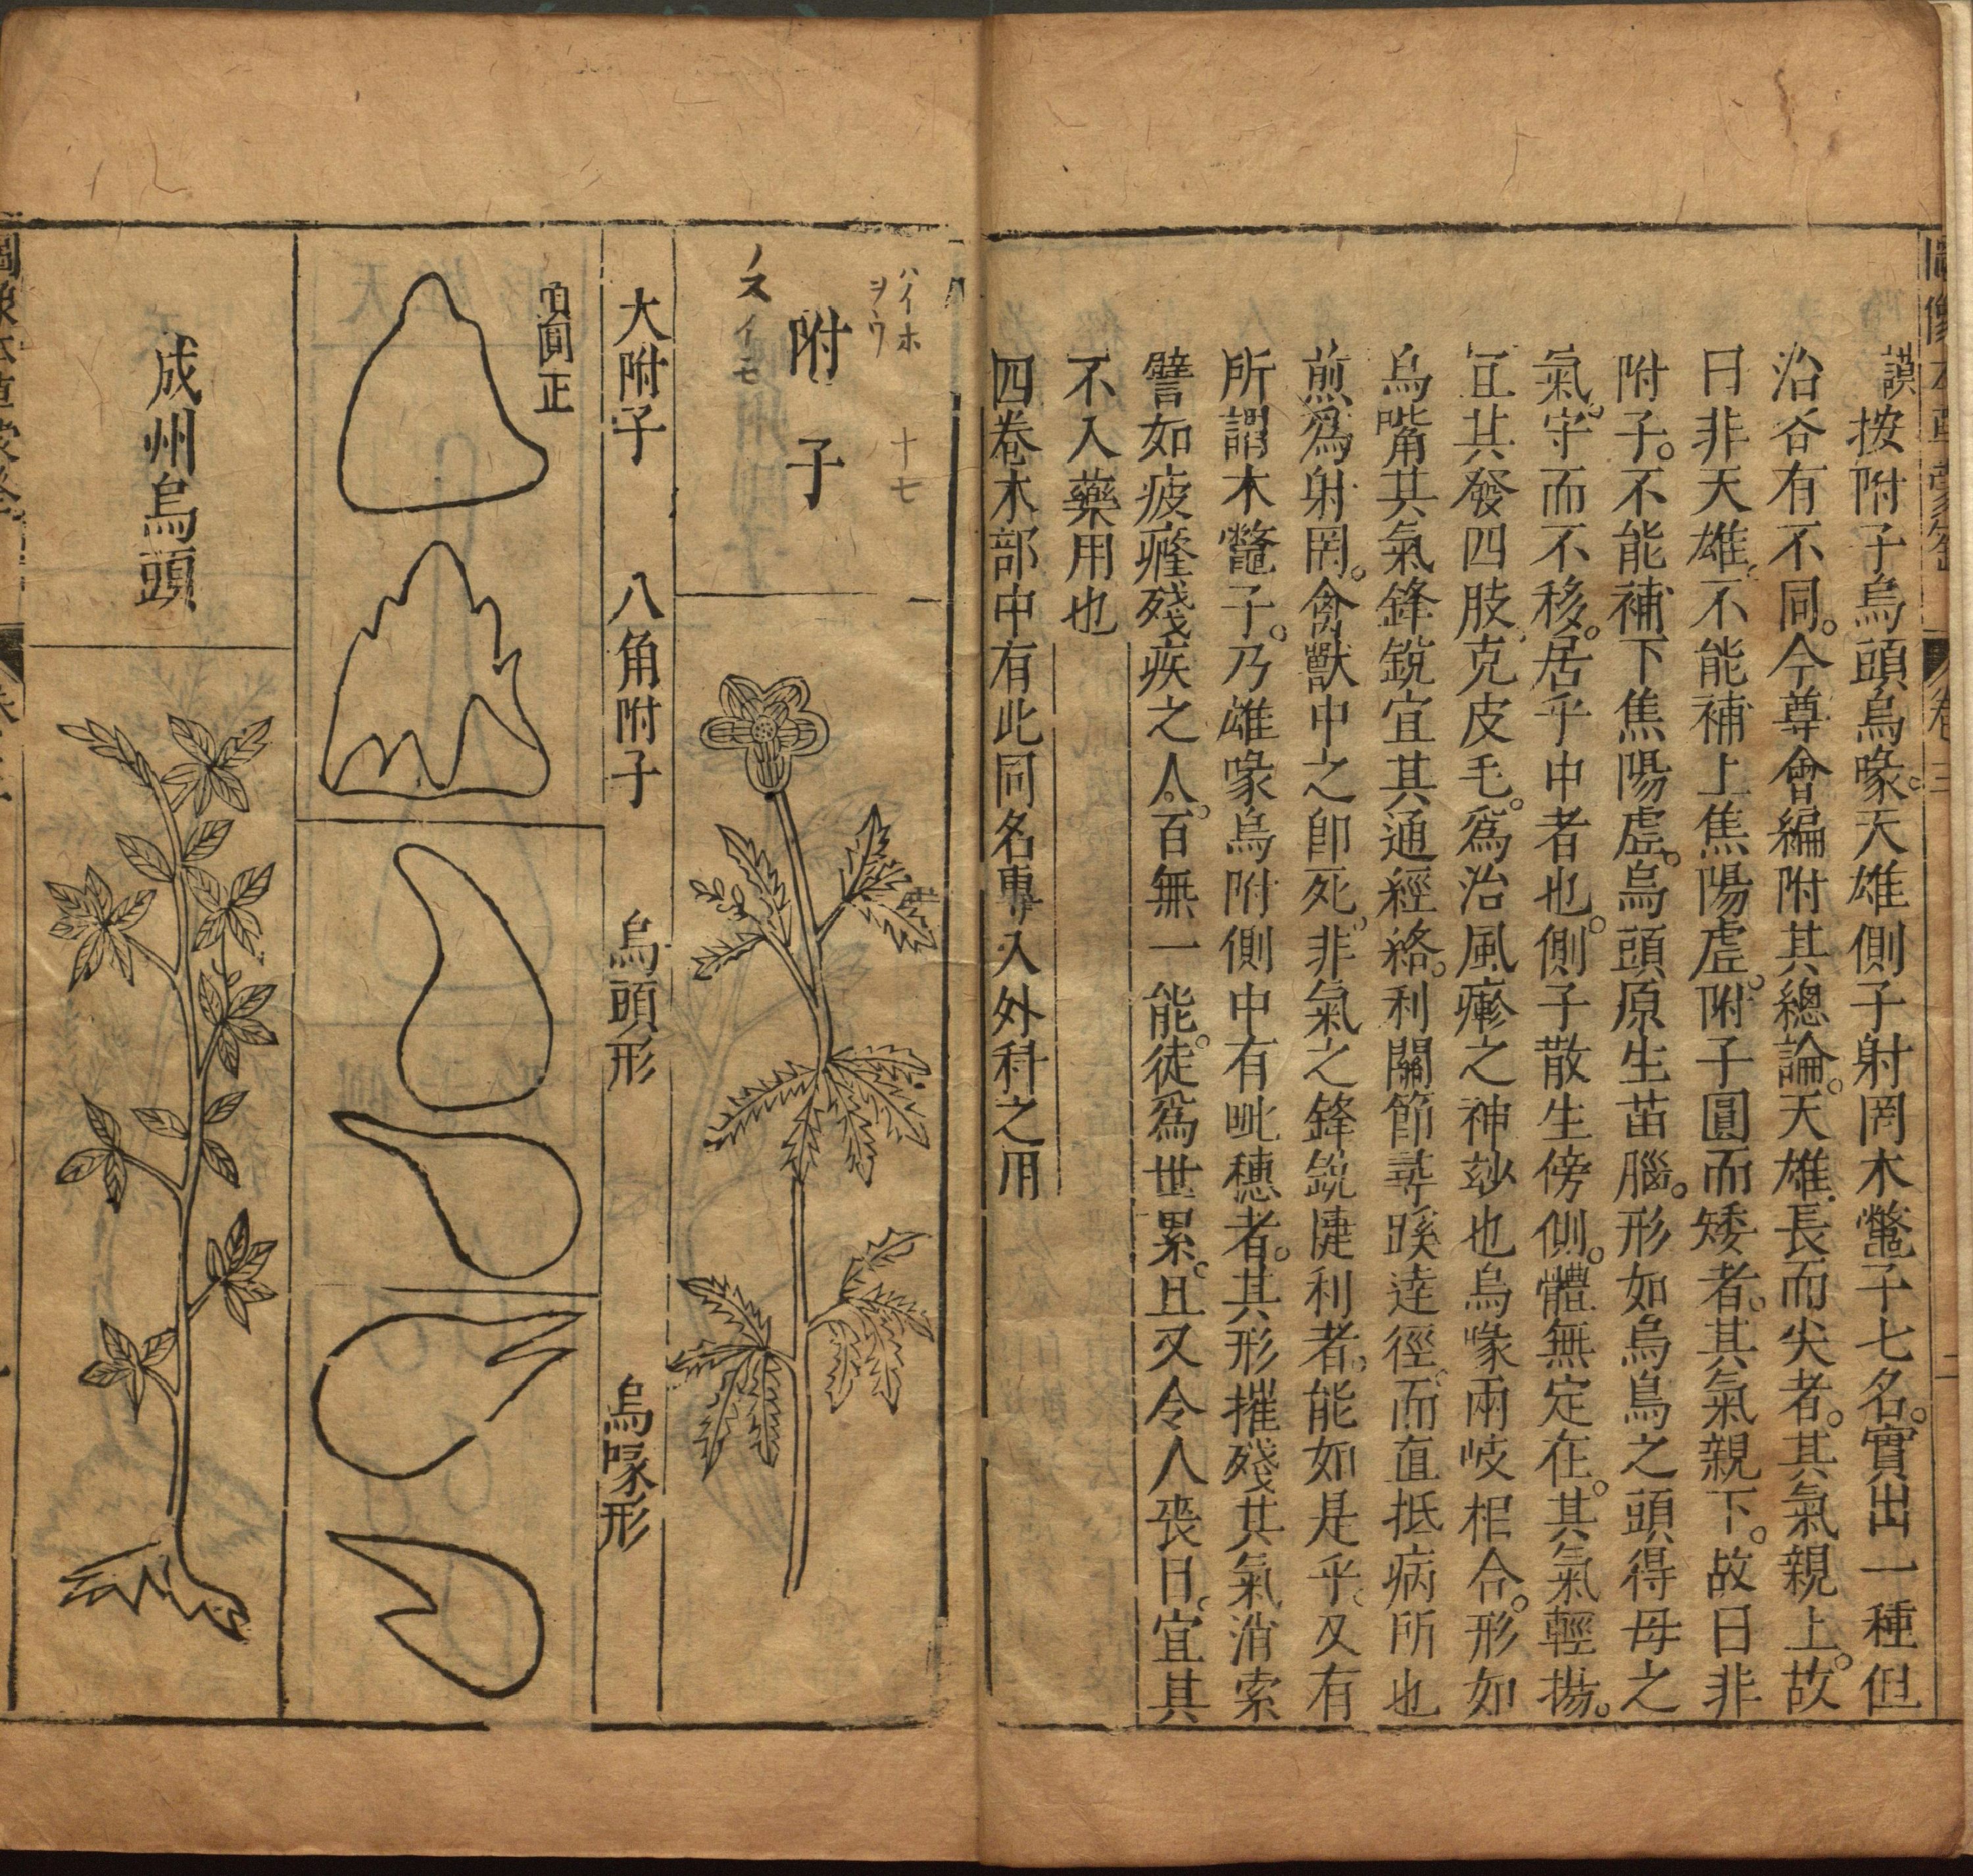 謨按附子烏頭烏喙。天雄側子射罔木鱉子七名。實出一種但
治各有不同。今尊會編附其總論。天雄長而尖者。其氣親上。故
曰非天雄不能補上焦陽虛。附子圓而矮者。其氣親下。故曰非
附子。不能補下焦陽虛。烏頭原生苗腦。形如烏鳥之頭得母之
氣。守而不移。居乎中者也。側子散生傍側。體無定在。其氣輕揚。
宜其發四肢克皮毛。為治風瘮之神玅也烏喙兩岐相合。形如
烏嘴其氣鋒銳宜其通經絡。利關節尋蹊逹徑而直抵病所也
煎為射罔。禽獸中之即死。非氣之鋒銳倢利者。能如是乎。又有
所謂木鱉子。乃雄喙烏附側中有毗穗者。其形摧殘其氣消索
譬如疲癃殘疾之人。百無一能。徒為世累。且又令人喪目。宜其
不入藥用也
四卷木部中有此同名專入外科之用
圖像本草蒙筌
卷三
附子
十七
ハイホ
ヲウ
ノス
イモ
大附子
八角附子
烏頭形
烏喙形
頂圓正
成州烏頭